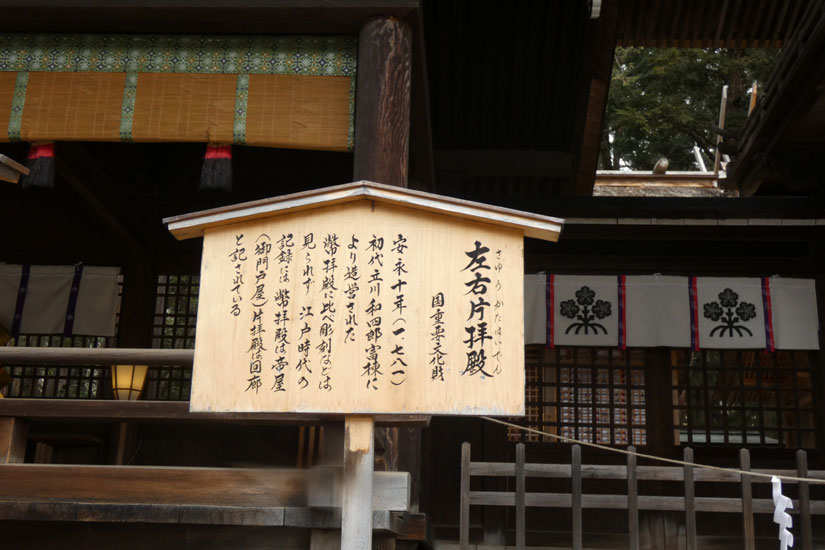 さゆう かたはいでん
左右片拝殿
国重要文化財
安永十年(一七八一)
初代立川和四郎富棟に
より造営された
幣拝殿に比べ彫刻などは
見られず 江戸時代の
記録には 幣拝殿は帝屋
(御門戸屋)片拝殿は回廊
と記されている